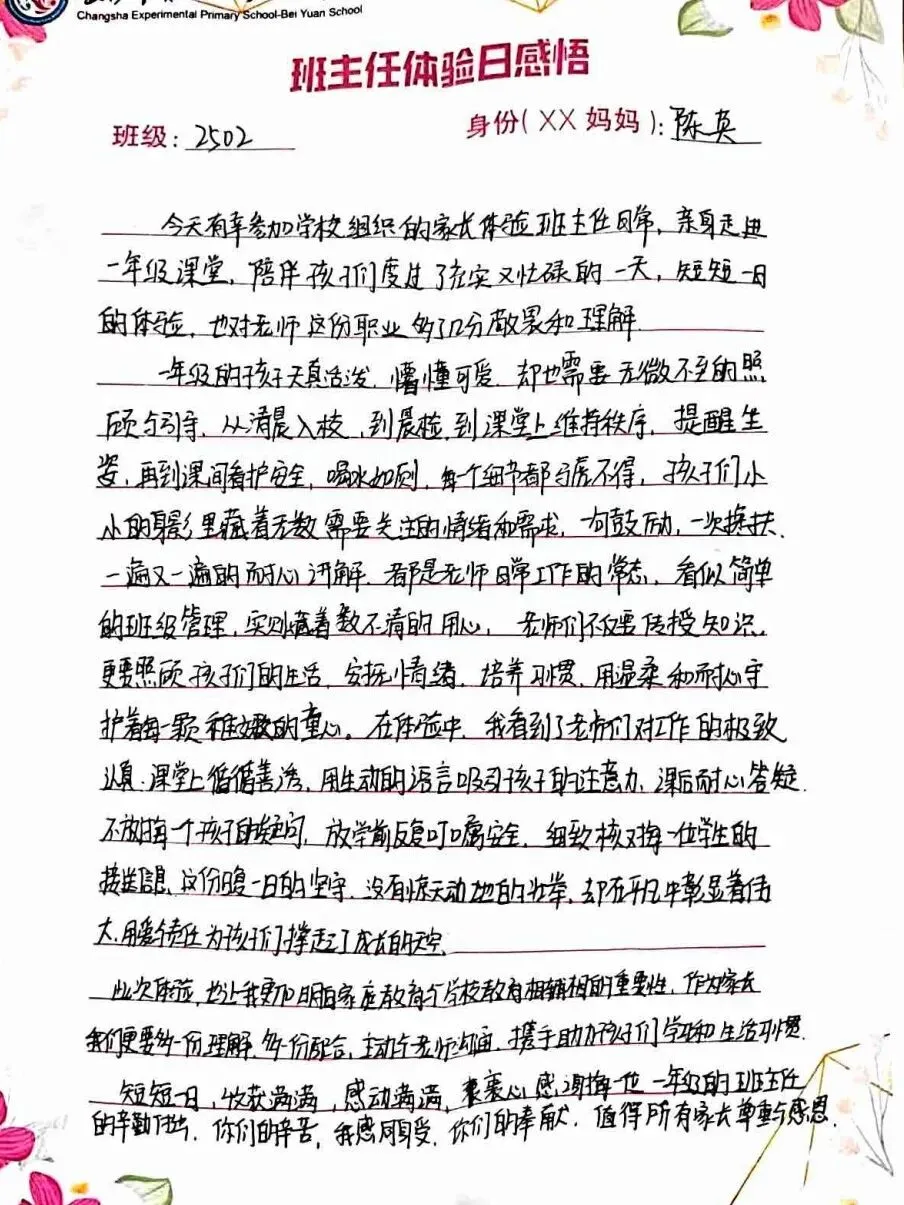 Changsha Experimental Primary School-Bei Yuan School
班主任体验日感悟
班级：2502 身份(XX妈妈)：陈英
今天有幸参加学校组织的家长体验班主任日常，亲身走进
一年级课堂，陪伴孩子们度过了充实又忙碌的一天，短短一日
的体验，也对老师这份职业多了几分敬畏和理解
一年级的孩子天真活泼，懵懂可爱，却也需要无微不至的照
顾与引导，从清晨入校，到晨检，到课堂上维持秩序，提醒坐
姿，再到课间看护安全，喝水如厕，每个细节都马虎不得，孩子们小
小的身影里藏着无数需要关注的情绪和需求，一句鼓励，一次搀扶，
一遍又一遍的耐心讲解，都是老师日常工作的常态，看似简单
的班级管理，实则藏着数不清的用心，老师们不仅要传授知识，
更要照顾孩子们的生活，安抚情绪，培养习惯，用温柔和耐心守
护着每一颗稚嫩的童心。在体验中，我看到了老师们对工作的极致
认真，课堂上循循善诱，用生动的语言吸引孩子的注意力，课后耐心答疑
不放掉每一个孩子的疑问，放学前反复叮嘱安全，细致核对每一位学生的
接送信息，这份日复一日的坚守，没有惊天动地的壮举，却在平凡中彰显着伟
大，用爱与责任为孩子们撑起了成长的天空
此次体验，也让我更加明白家庭教育与学校教育相辅相的重要性，作为家长
我们更要多一份理解，多一份配合，主动与老师沟通，携手助力孩子们学习和生活习惯.
短短一日，收获满满，感动满满，衷心感谢每一位一年级的班主任
的辛勤付出，你们的辛苦，我感同身受，你们的奉献，值得所有家长尊重与感恩.